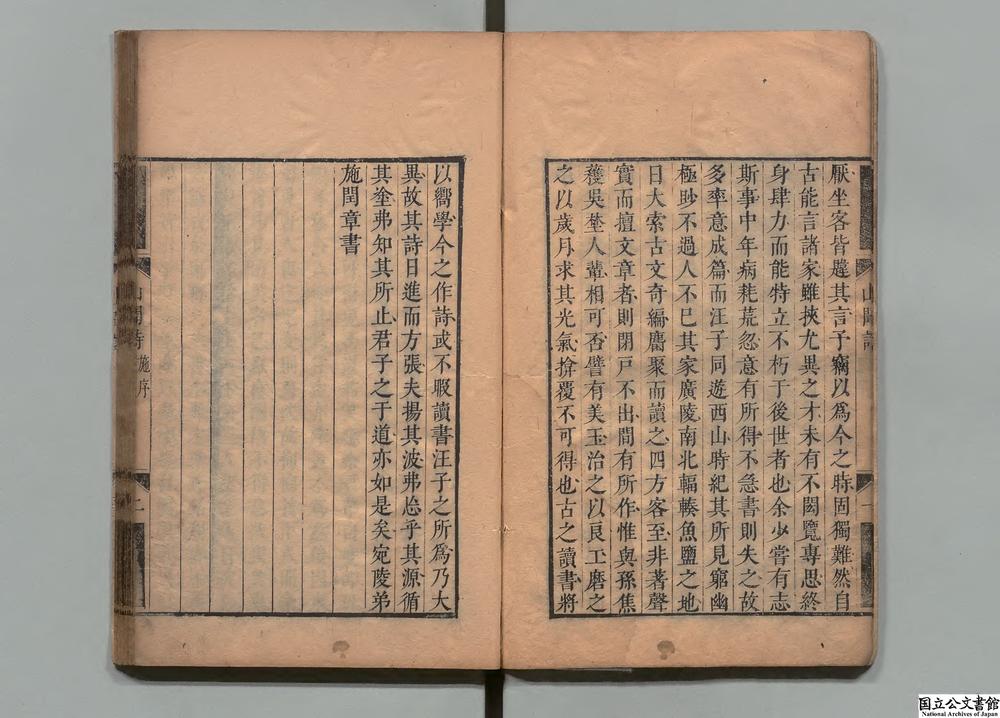 厭坐客皆韙其言予竊以為今之時固獨難然自
古能言諸家雖挾尤異之才未有不閎覽專思終
身肆力而能特立不朽于後世者也余少嘗有志
斯事中年病耗荒忽意有所得不急書則失之故
多率意成篇而汪子同遊西山時紀其所見窮幽
極眇不過人不已其家廣陵南北輻輳魚鹽之地
日大索古文奇編麕聚而讀之四方客至非著聲
實而擅文章者則閉戶不出間有所作惟與孫焦
穫吳埜人輩相可否譬有美玉治之以良工磨之
之以歲月求其光氣揜覆不可得也古之讀書將
山聞詩
一
以嚮學今之作詩或不暇讀書汪子之所為乃大
異故其詩日進而方張夫揚其波弗忘乎其源循
其塗弗知其所止君子之于道亦如是矣宛陵弟
施閏章書
山聞詩
施序
二
国立公文書館
National Archives of Japan